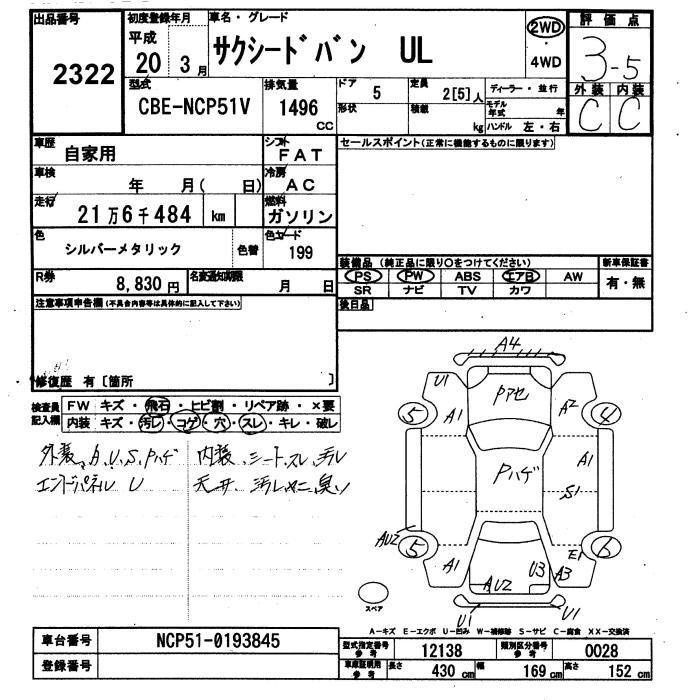 出品番号 初度登録年月 車名・グレード 評価点
2322 平成 20年 3月 サクシードバン UL 2WD・4WD 3-5
型式 排気量 ドア 定員 ディーラー・並行 外装 内装
CBE-NCP51V 1496 cc 5 2[5]人 モデル年式 年 C C
形状 積載 kg ハンドル 左・右
車歴 シフト セールスポイント(正常に機能するものに限ります)
自家用 FAT
車検 冷房
年 月( 日) AC
走行 燃料
21万6千484 km ガソリン
色 色替 色コード
シルバーメタリック 199
装備品 (純正品に限り○をつけてください) 新車保証書
PS PW ABS エアB AW 有・無
SR ナビ TV カワ
R券 名変通知期限
8,830円 月 日
後日品
注意事項申告欄(不具合内容等は具体的に記入して下さい)
修復歴 有〔箇所 〕
検査員記入欄 FW キズ・飛石・ヒビ割・リペア跡・×要
内装 キズ・汚レ・コゲ・穴・スレ・キレ・破レ
外装、A、U、S、Pハゲ 内装、シートスレ、汚レ
エンドパネル U 天井、汚レ
A4
U1 Pアセ
5 A1 A2 4
Pハゲ A1
S1
AU2 5 A1 E1 6
AU2 U3 A3
U1 U1
スペア
A-キズ E-エクボ U-凹み W-補修跡 S-サビ C-腐食 XX-交換済
車台番号 NCP51-0193845 型式指定番号 参考 12138 類別区分番号 参考 0028
登録番号 車庫証明用 参考 長さ 430 cm 幅 169 cm 高さ 152 cm